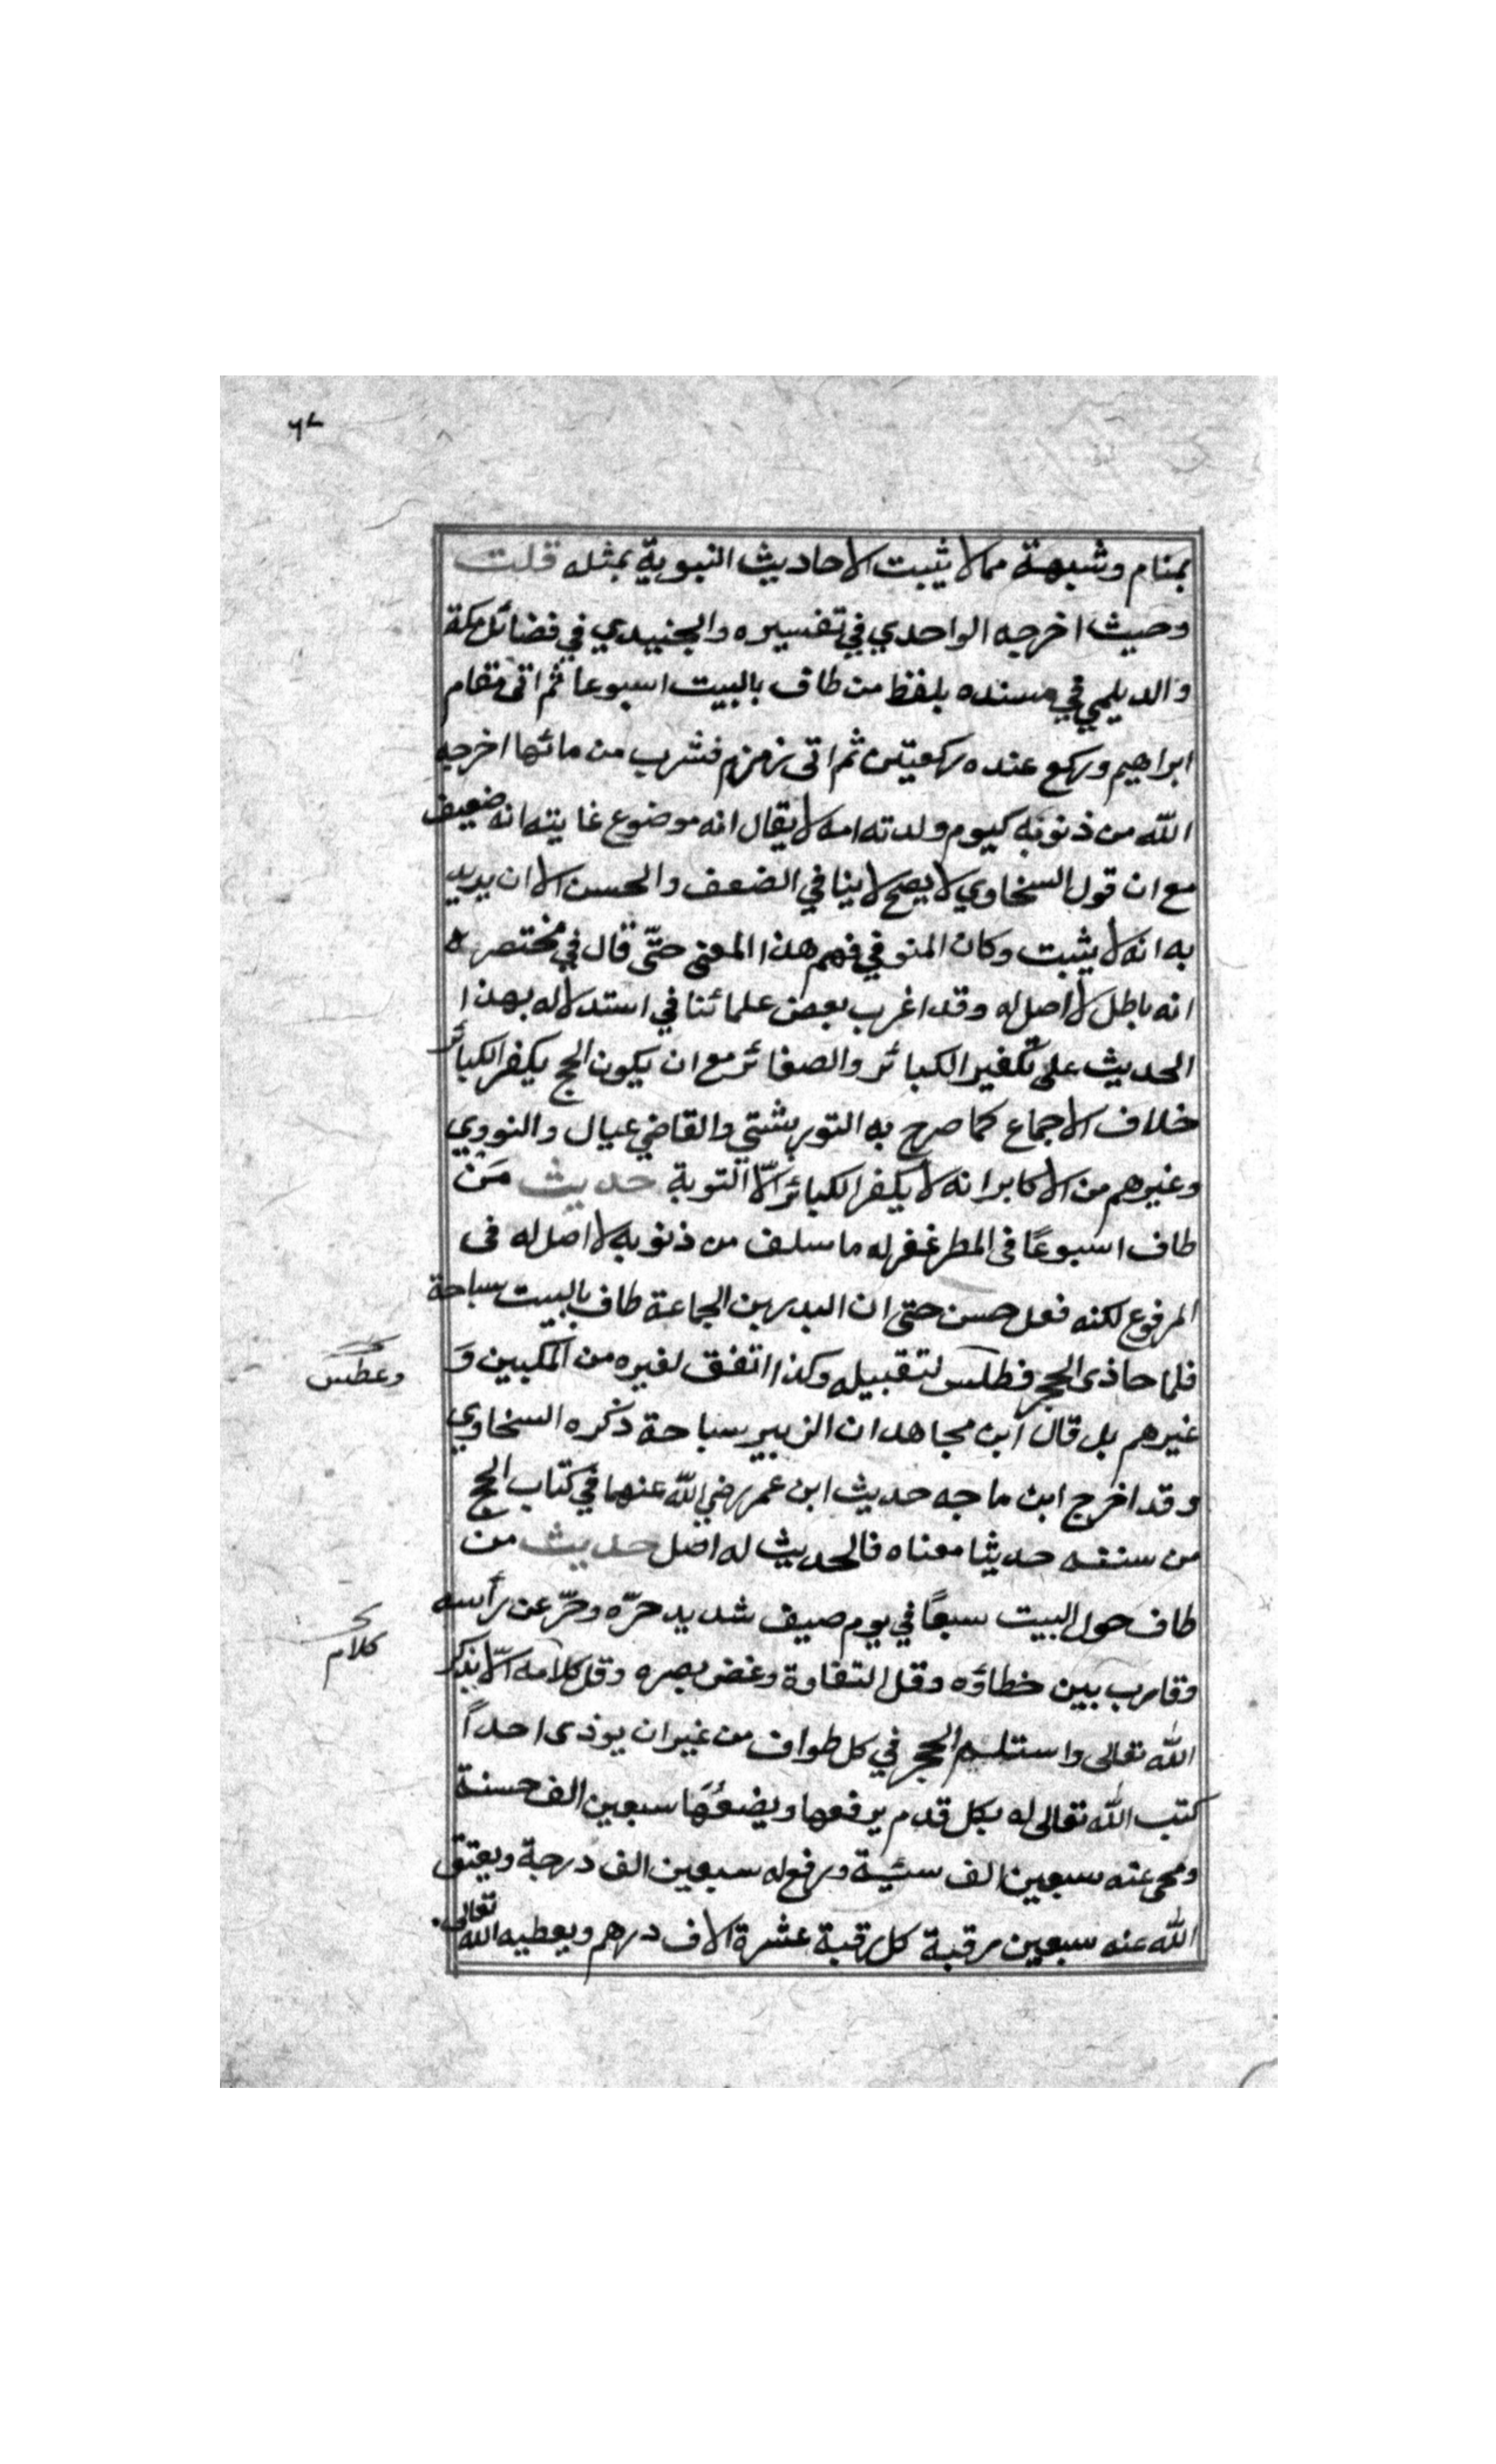 ٦٨
بمنام وشبهة مما لا يثبت الاحاديث النبوية بمثله قلت
وحيث اخرجه الواحدي في تفسيره والجنيدي في فضائل مكة
والديلمي في مسنده بلفظ من طاف بالبيت اسبوعا ثم اتى مقام
ابراهيم وركع عنده ركعتين ثم اتى زمزم فشرب من مائها اخرجه
الله من ذنوبه كيوم ولدته امه لا يقال انه موضوع غايته انه ضعيف
مع ان قول السخاوي لا يصح لا ينافي الضعف والحسن الا ان يريد
به انه لا يثبت وكان المنوفي فهم هذا المعنى حتّى قال في مختصره
انه باطل لا اصل له وقد اغرب بعض علمائنا في استدلاله بهذا
الحديث على تكفير الكبائر والصغائر مع ان يكون الحج يكفر الكبائر
خلاف الاجماع كما صرح به التوربشتي والقاضي عيال والنووي
وغيرهم من الاكابر انه لا يكفر الكبائر الّا التوبة حديث مَن
طاف اسبوعًا فى المطر غفر له ما سلف من ذنوبه لا اصل له فى
المرفوع لكنه فعل حسن حتى ان البدر بن الجماعة طاف بالبيت سباحة
فلما حاذى الحجر فطلس لتقبيله وكذا اتفق لغيره من المكيين وَ
وعطس
غيرهم بل قال ابن مجاهد ان الزبير سباحة ذكره السخاوي
وقد اخرج ابن ماجه حديث ابن عمر رضي الله عنهما في كتاب الحج
من سننه حديثا معناه فالحديث له اصل حديث من
طاف حول البيت سبعًا في يوم صيف شديد حرّه وحرّ عن رأسه
كلام
وقارب بين خطاؤه وقل التفاوة وغض بصره وقل كلامه الّا بذكر
الله تعالى واستلم الحجر في كل طواف من غير ان يوذى احداً
كتب الله تعالى له بكل قدم يرفعها ويضعُهَا سبعين الف حسنة
ومحى عنه سبعين الف سئية ورفع له سبعين الف درجة ويعتق
الله عنه سبعين رقبة كل رقبة عشرة الاف درهم ويعطيه الله تعالى